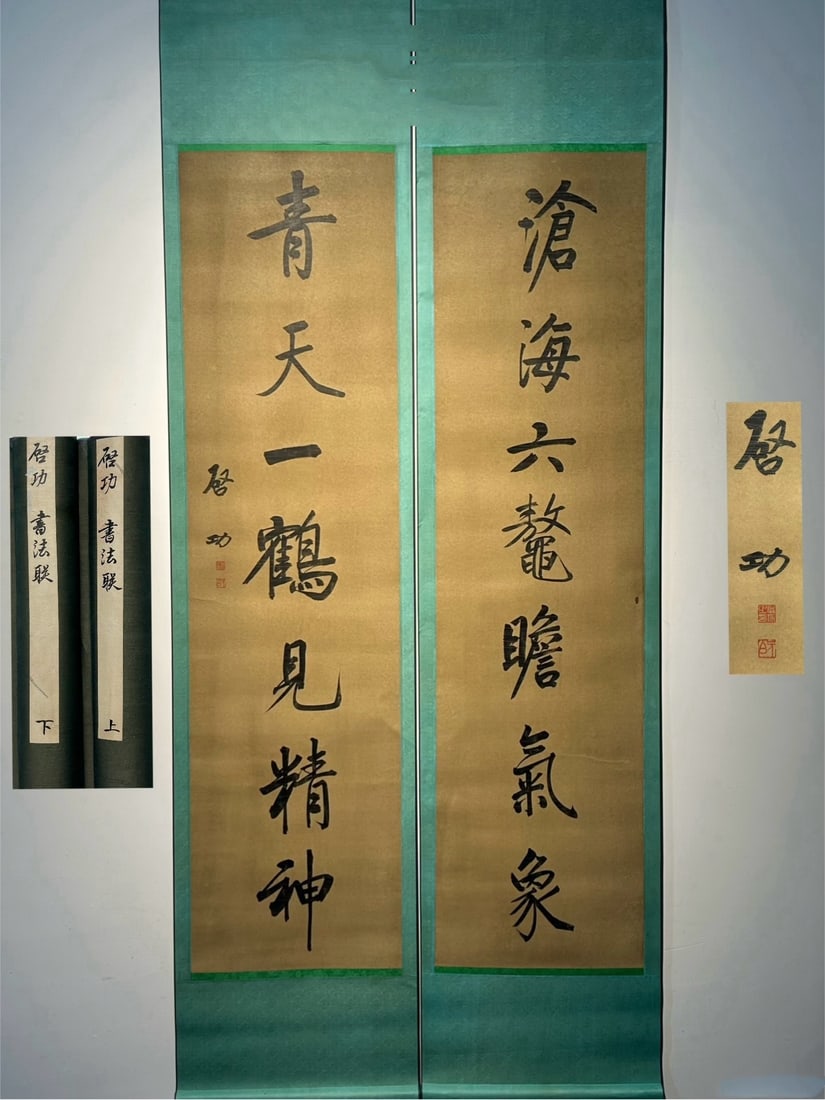 滄海六鰲瞻氣象
青天一鶴見精神
啓功
啓功 書法联 上
啓功 書法联 下
啓功